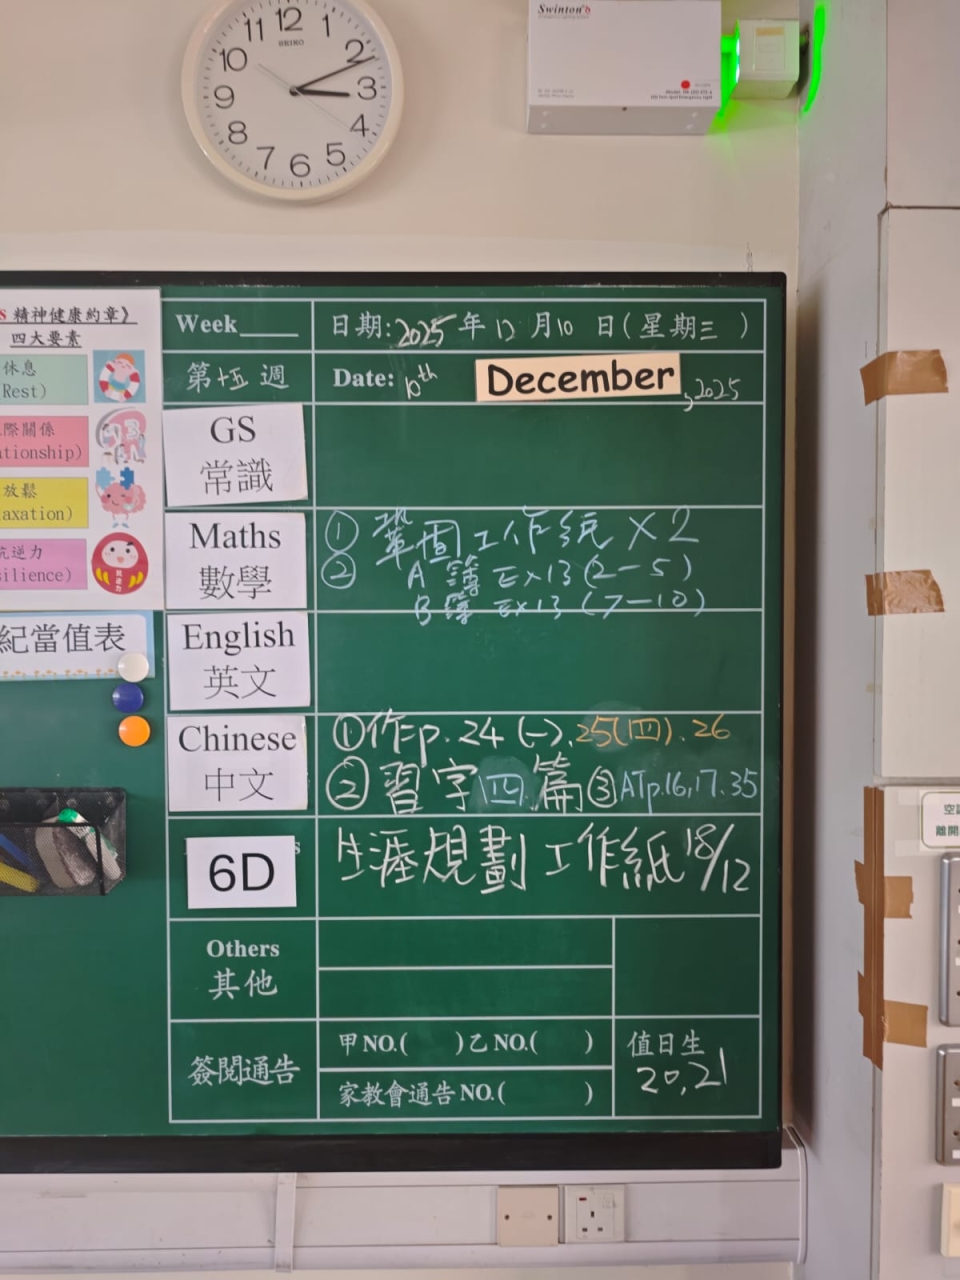 12
1
2
3
4
5
6
7
8
9
10
11
SEIKO
Swinton
S 精神健康約章》
四大要素
休息
Rest)
際關係
ationship)
放鬆
axation)
抗逆力
silience)
紀當值表
Week
日期:2025年12月10日(星期三)
第十五週
Date: 10th December, 2025
GS
常識
Maths
數學
① 鞏固工作紙 X2
② A簿 Ex13 (2-5)
B簿 Ex13 (7-10)
English
英文
Chinese
中文
①作p.24(一).25(四).26
②習字四篇③ATp.16,17.35
6D
生涯規劃工作紙18/12
Others
其他
簽閱通告
甲NO.( )乙NO.( )
家教會通告NO.( )
值日生
20,21
空
離開